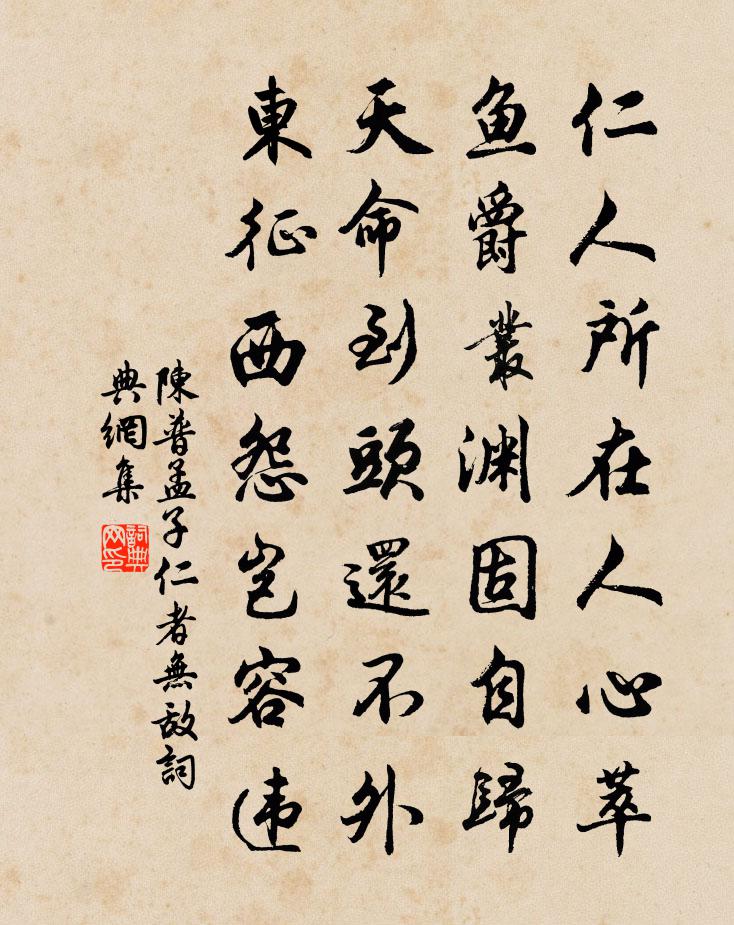 仁人所在人心萃
鱼爵叢渊固自歸
天命到頭還不外
東征西怨岂容违
陳普孟子仁者無敌詞
典網集
詞典网印